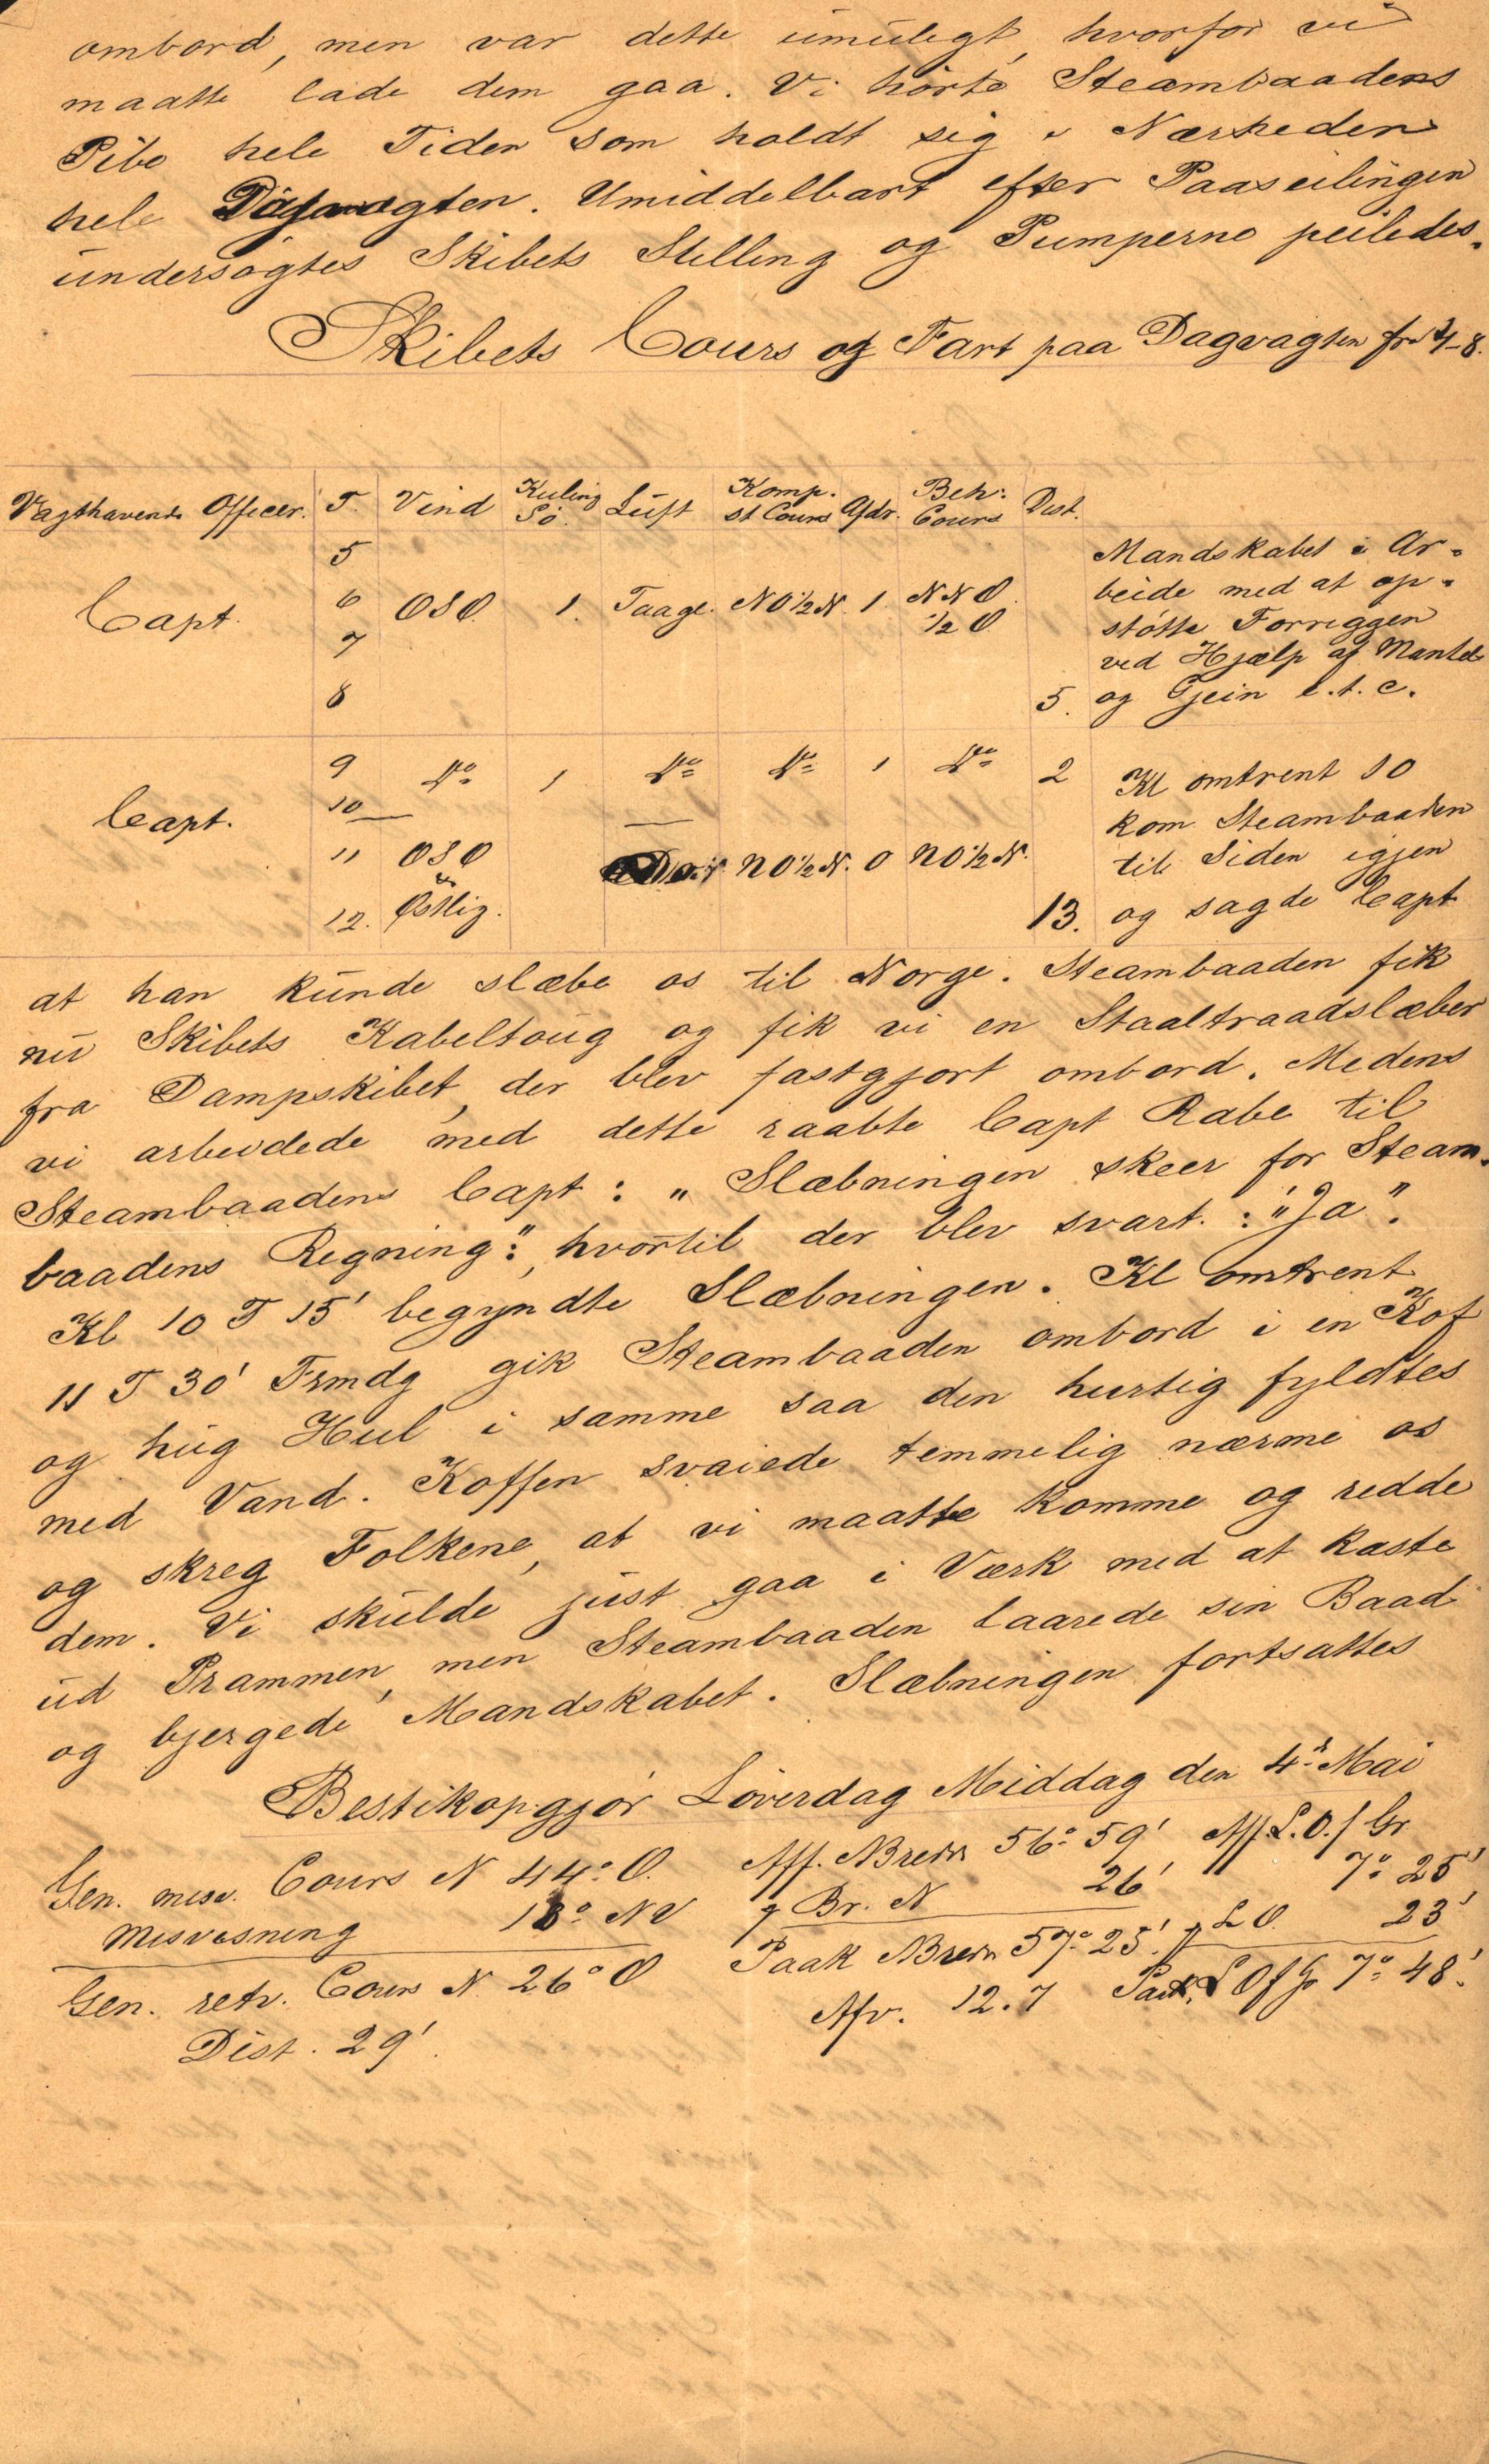 ombord, men var dette umuligt, hvorfor vi
maatte lade dem gaa. Vi hørte Steambaadens
Pibe hele Tiden som holdt sig i Nærheden
hele Dagvagten. Umiddelbart efter Paaseilingen
undersøgtes Skibets Stilling og Pumperne peiledes.
Skibets Cours og Fart paa Dagvagten fra 4-8.
Vagthavende Officer. T. Vind Kuling Sø. Luft Komp. st Cours Afdr. Beh. Cours Dist.
5 Mandskabet i Ar-
Capt. 6 OSO. 1. Taage. NO½N. 1. NNO ½O. beide med at op-
7 støtte Forriggen
ved Hjælp af Mantel
8 5. og Gjein e.t.c.
9 Do 1 Do Do 1 Do 2 Kl omtrent 10
Capt. 10 kom Steambaaden
11 OSO NO½N. O NO½N. til Siden igjen
12. Østlig. 13. og sagde Capt
at han kunde slæbe os til Norge. Steambaaden fik
nu Skibets Kabeltoug og fik vi en Staaltraadslæber
fra Dampskibet, der blev fastgjort ombord. Medens
vi arbeidede med dette raabte Capt Rabe til
Steambaadens Capt: „Slæbningen skeer for Steam-
baadens Regning", hvortil der blev svart: "Ja".
Kl 10 T 15' begyndte Slæbningen. Kl omtrent
11 T 30' Frmdg gik Steambaaden ombord i en Kof
og hug Hul i samme saa den hurtig fyldtes
med Vand. Koffen svaiede temmelig nærme os
og skreg Folkene, at vi maatte komme og redde
dem. Vi skulde just gaa i Værk med at kaste
ud Prammen, men Steambaaden laarede sin Baad
og bjergede Mandskabet. Slæbningen fortsattes
Bestikopgjør Løverdag Middag den 4de Mai
Gen. misv. Cours N 44° O. Aff. NBrede 56° 59' Aff. L. O. f Gr 7° 25'
Misvisning 18° NV Br. N 26' LO. 23'
Gen. retv. Cours N. 26° O Paak NBrede 57° 25'. Paak. L O f Gr 7° 48'.
Dist. 29'. Afv. 12.7